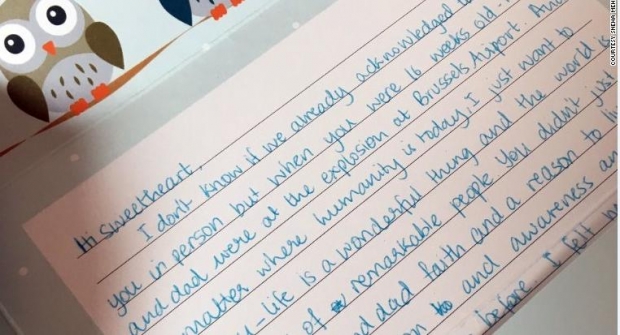 Hi sweetheart,
I don't know if we already acknowledged
you in person but when you were 16 weeks old
and dad were at the explosion at Brussels Airport.
matter where humanity is today, I just want to
- life is a wonderful thing and the world is
of remarkable people you didn't just
dad faith and a reason to
and awareness
before I felt
COURTESY SNEHA MEH